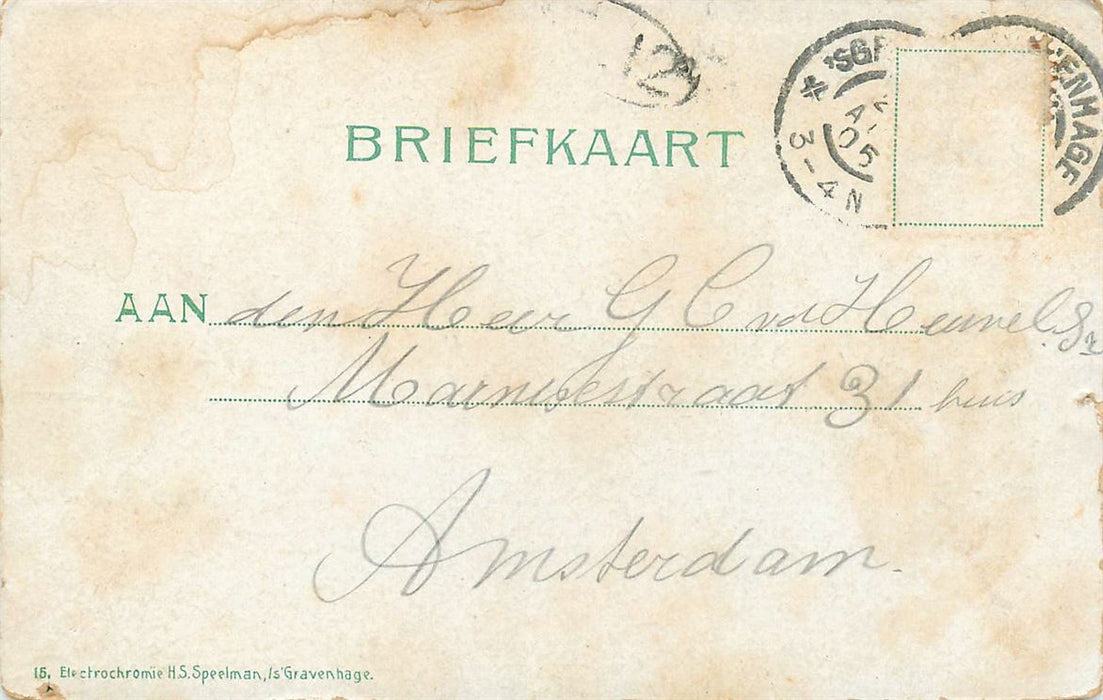 12
'SGR
ENHAGE
05
3-4N
BRIEFKAART
AAN den Heer G C vd Heuvel. Sr
Marnixstraat 31 huis
Amsterdam.
15. Electrochromie H.S. Speelman, /s'Gravenhage.